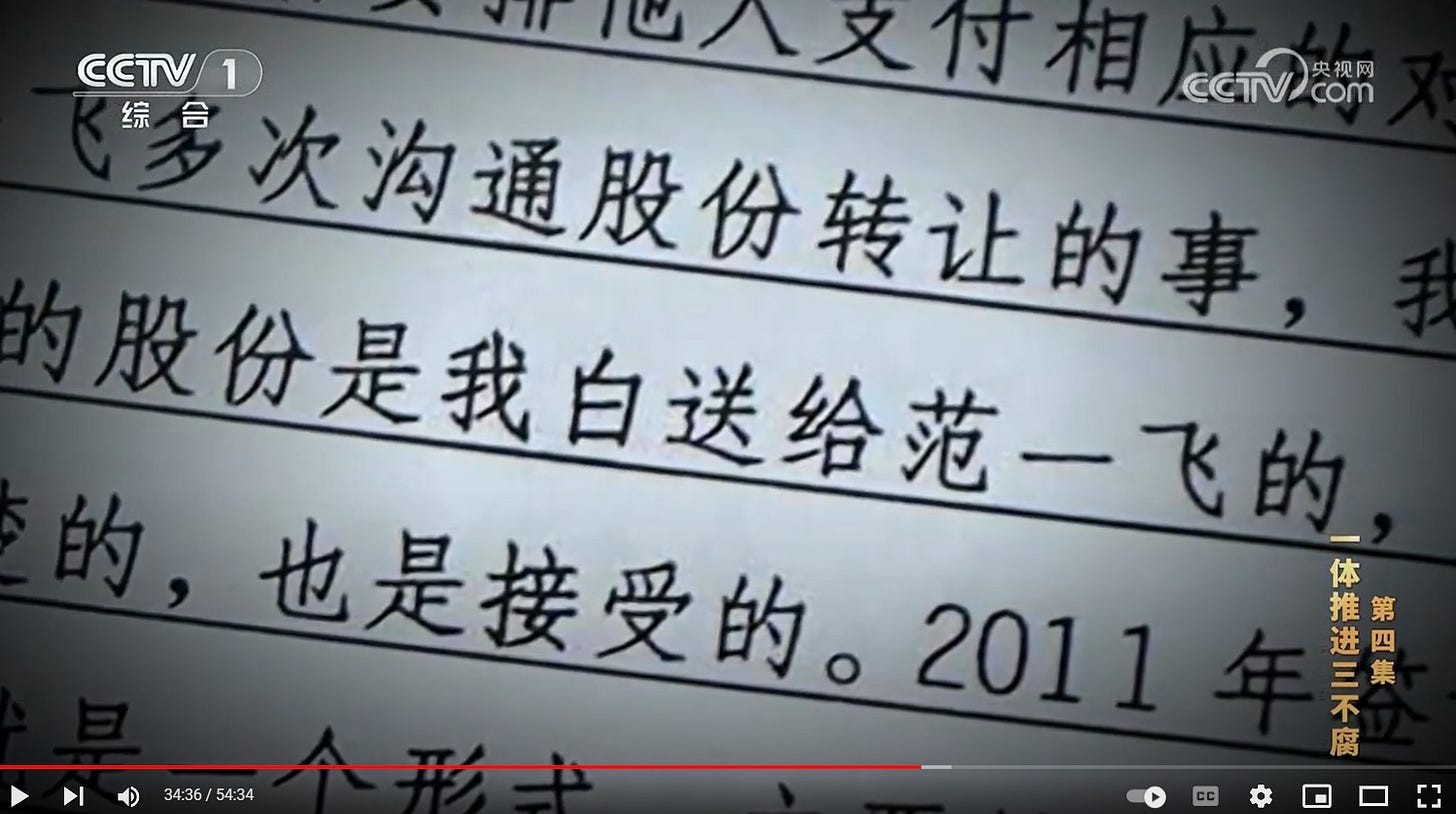 CCTV 1
综合
CCTV.com
央视网
排他人支付相应的对
飞多次沟通股份转让的事，我
的股份是我白送给范一飞的，
楚的，也是接受的。2011年签
就是一个形式
第四集
一体推进三不腐
34:36 / 54:34
CC